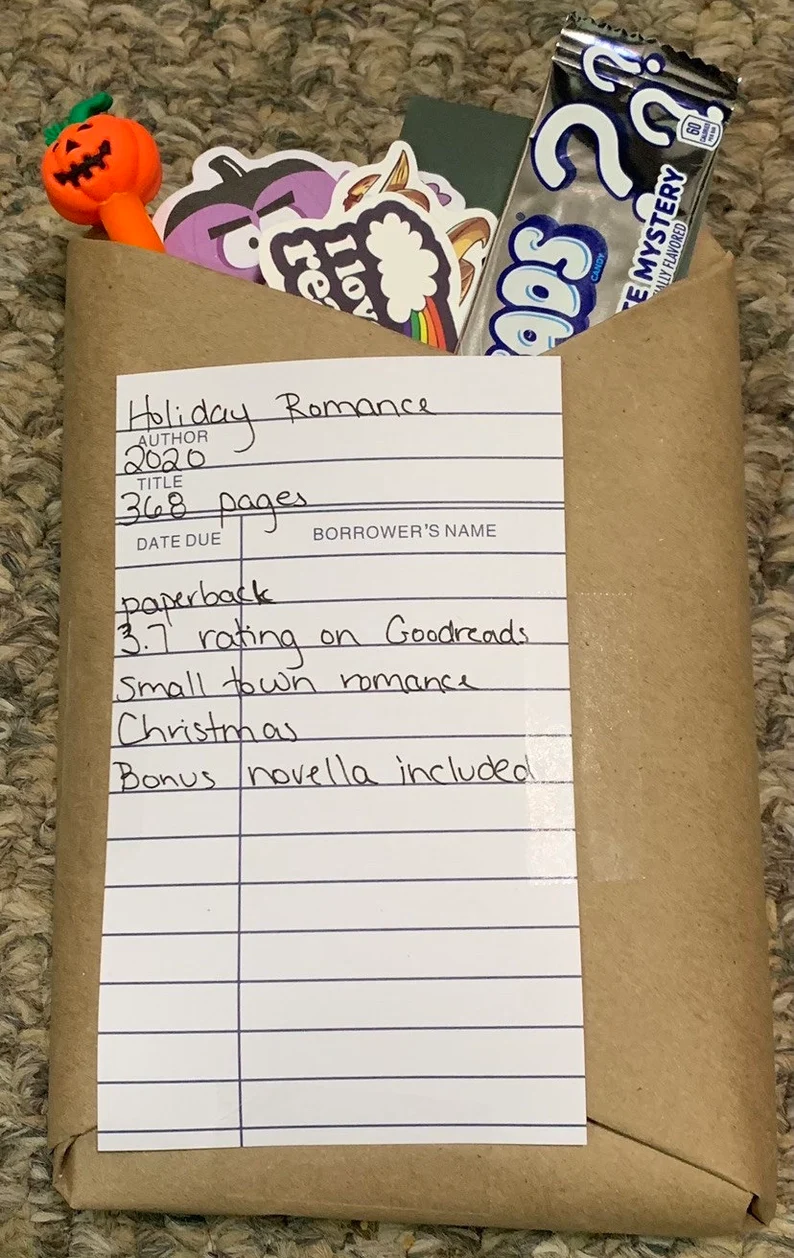 60
CALORIES
PER BAR
MYSTERY
CANDY
I lov
re
Holiday Romance
AUTHOR
2020
TITLE
368 pages
DATE DUE BORROWER'S NAME
paperback
3.7 rating on Goodreads
Small town romance
Christmas
Bonus novella included